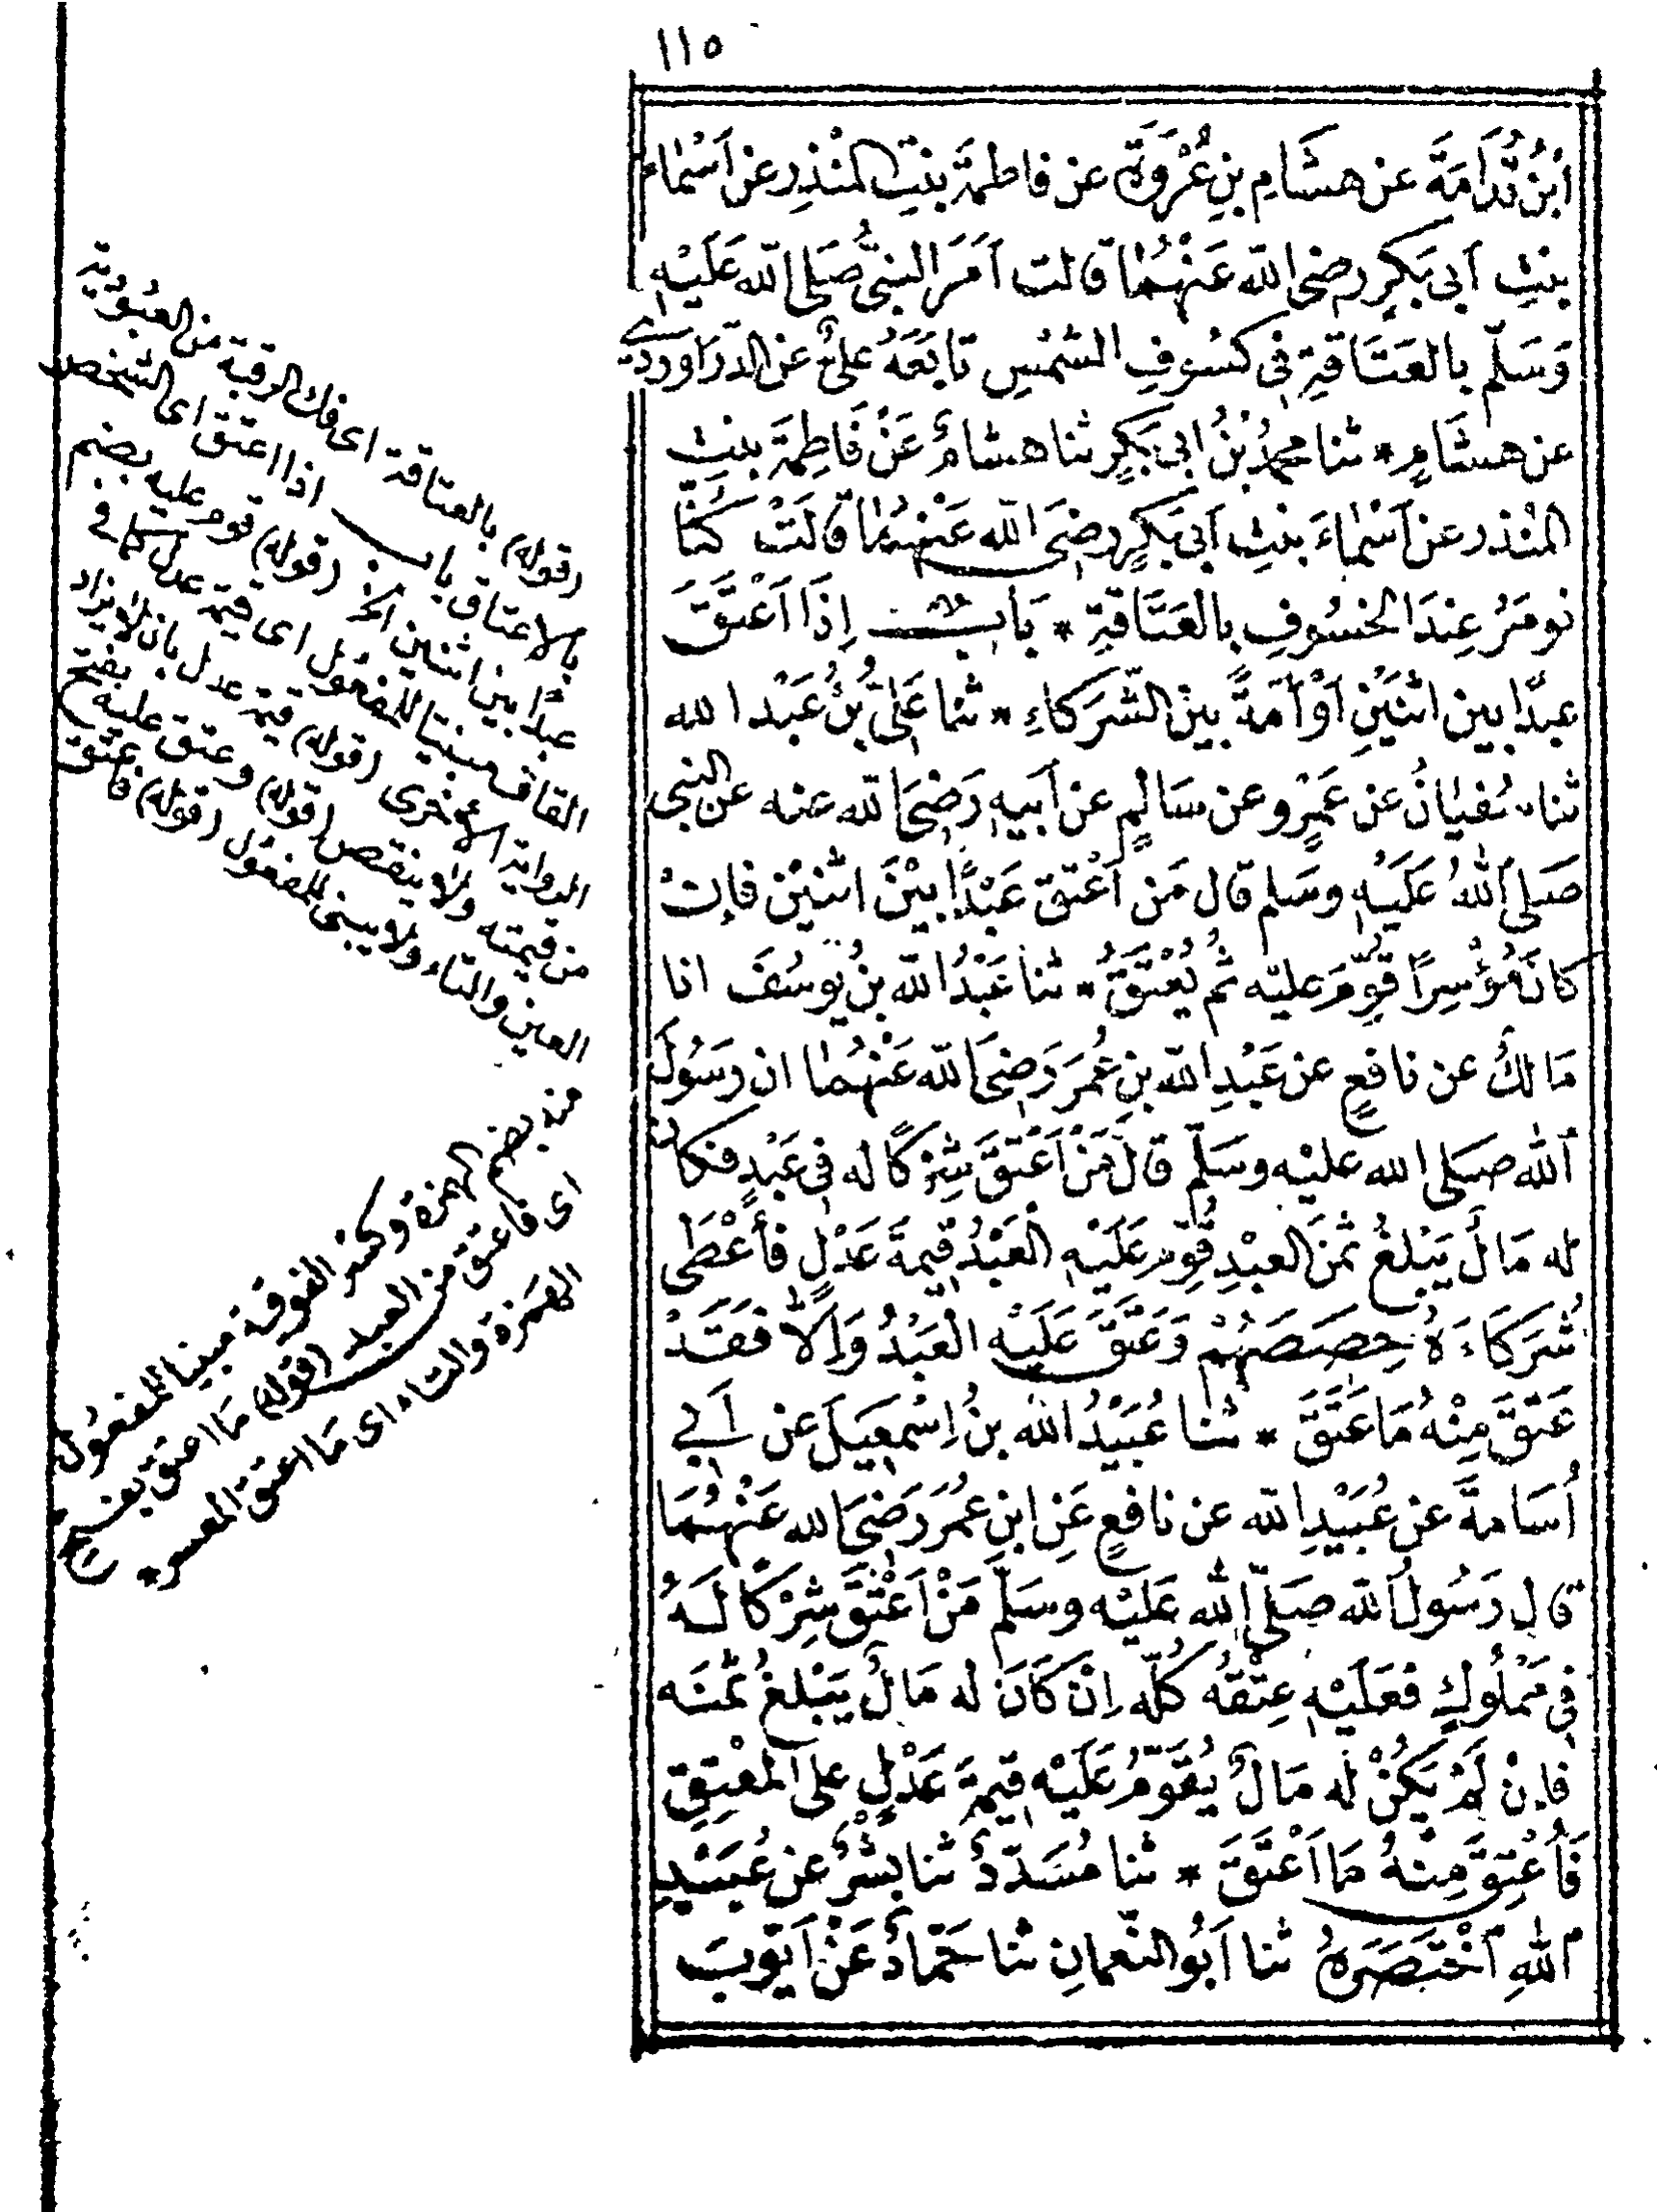 ١١٥
ابْنُ قُدَامَةَ عن هشَامِ بنِ عُرْوَةَ عن فاطمةَ بنتِ المنْذِرِ عن اَسْمَاء
بنتِ اَبى بَكرٍ رضى الله عَنْهُمَا قالت اَمَرَ النبىُّ صَلى الله عَلَيْهِ
وَسَلّم بالعَتَاقةِ فى كسُوفِ الشمْسِ تابَعَهُ علىٌّ عن الدّرَاوَردىّ
عن هشَامٍ * ثنا محمدُ بْنُ ابى بَكرٍ ثنا هشامٌ عَنْ فَاطِمَةَ بنتِ
المنْذر عن اَسْمَاءَ بنتِ اَبى بَكرٍ رضىَ الله عَنهُمَا قالَتْ كنَّا
نومَرُ عِندَ الخسُوفِ بالعَتَاقةِ * بَابُ اِذَا اَعْتَقَ
عبدًا بين اثنَيْنِ اَوْ اَمَةً بين الشّرَكاءِ * ثنا عَلىُّ بْنُ عَبْد الله
ثنا سُفيانُ عن عَمْرٍو عن سَالمٍ عن اَبيهِ رَضىَ الله عنه عن النبى
صَلى اللهُ عَلَيْهِ وسَلم قال مَن اَعْتق عَبْدًا بيْنَ اثنيْن فاِنْ
كانَ مُوْسِرًا قُوِّمَ عليْه ثم يُعْتَقُ * ثنا عَبْدُ الله بنُ يوسُفَ انا
مَالكٌ عن نافعٍ عن عَبْدِ الله بنِ عُمَرَ رَضىَ الله عَنْهُمَا ان رَسُولَ
الله صَلى الله عليْه وسَلّم قالَ مَنْ اَعْتَقَ شِرْكًا له فى عَبْدٍ فكان
له مَالٌ يَبْلغُ ثمَنَ العبْدِ قُوِّم عَلَيْهِ العَبْدُ قيمةَ عَدْلٍ فأعْطَى
شُرَكَاءَهُ حِصَصَهُمْ وَعَتَقَ عَلَيْه العَبْدُ وَاِلاَّ فَقَدْ
عَتَقَ مِنْهُ مَا عَتَقَ * ثنا عُبَيْدُ الله بنُ اِسْمٰعيَل عن اَبى
اُسَامةَ عن عُبَيْدِ الله عن نافعٍ عَنِ ابنِ عُمَرَ رَضىَ الله عَنْهُمَا
قال رَسُولُ الله صَلّى الله عَليْه وسَلّم مَنْ اَعْتَقَ شِرْكًا لَهُ
فى مَمْلُوكٍ فعَلَيْهِ عِتْقُهُ كُلّه اِنْ كَانَ له مَالٌ يَبْلغُ ثمَنَه
فاِنْ لَمْ يَكُنْ له مَالٌ يُقَوَّمُ عَلَيْه قيمةَ عَدْلٍ على المُعْتِقِ
فَاُعْتِقَ مِنْهُ مَا اَعْتَقَ * ثنا مُسَدّدٌ ثنا بشْرٌ عن عُبَيْدِ
اللهِ اخْتَصَرَهُ ثنا اَبُو النّعمانِ ثنا حَمّادٌ عَنْ اَيّوبَ
(قوله) بالعتاقة اى فك الرقبة من العبُودية
بالاعتاق باب اذا اعتق اى الشخص
عبدًا بين اثنين الخ (قوله) قوم عليه بضم
القاف مبنيا للمفعُول اى قيمة عدل كما فى
الرواية الاخرى (قوله) قيمة عدل بان لا يزاد
من قيمته ولا ينقص (قوله) وعتق عليه بفتح
العين والتاء ولا يبنى للمفعُول (قوله) فاعتق
منه بضم الهمزة وكسر الفوقية مبنيا للمفعُول
اى فاعتق من العبد (قوله) مَا اعتق بفتح
الهَمزة والتاء اى مَا اعتق المعسر *